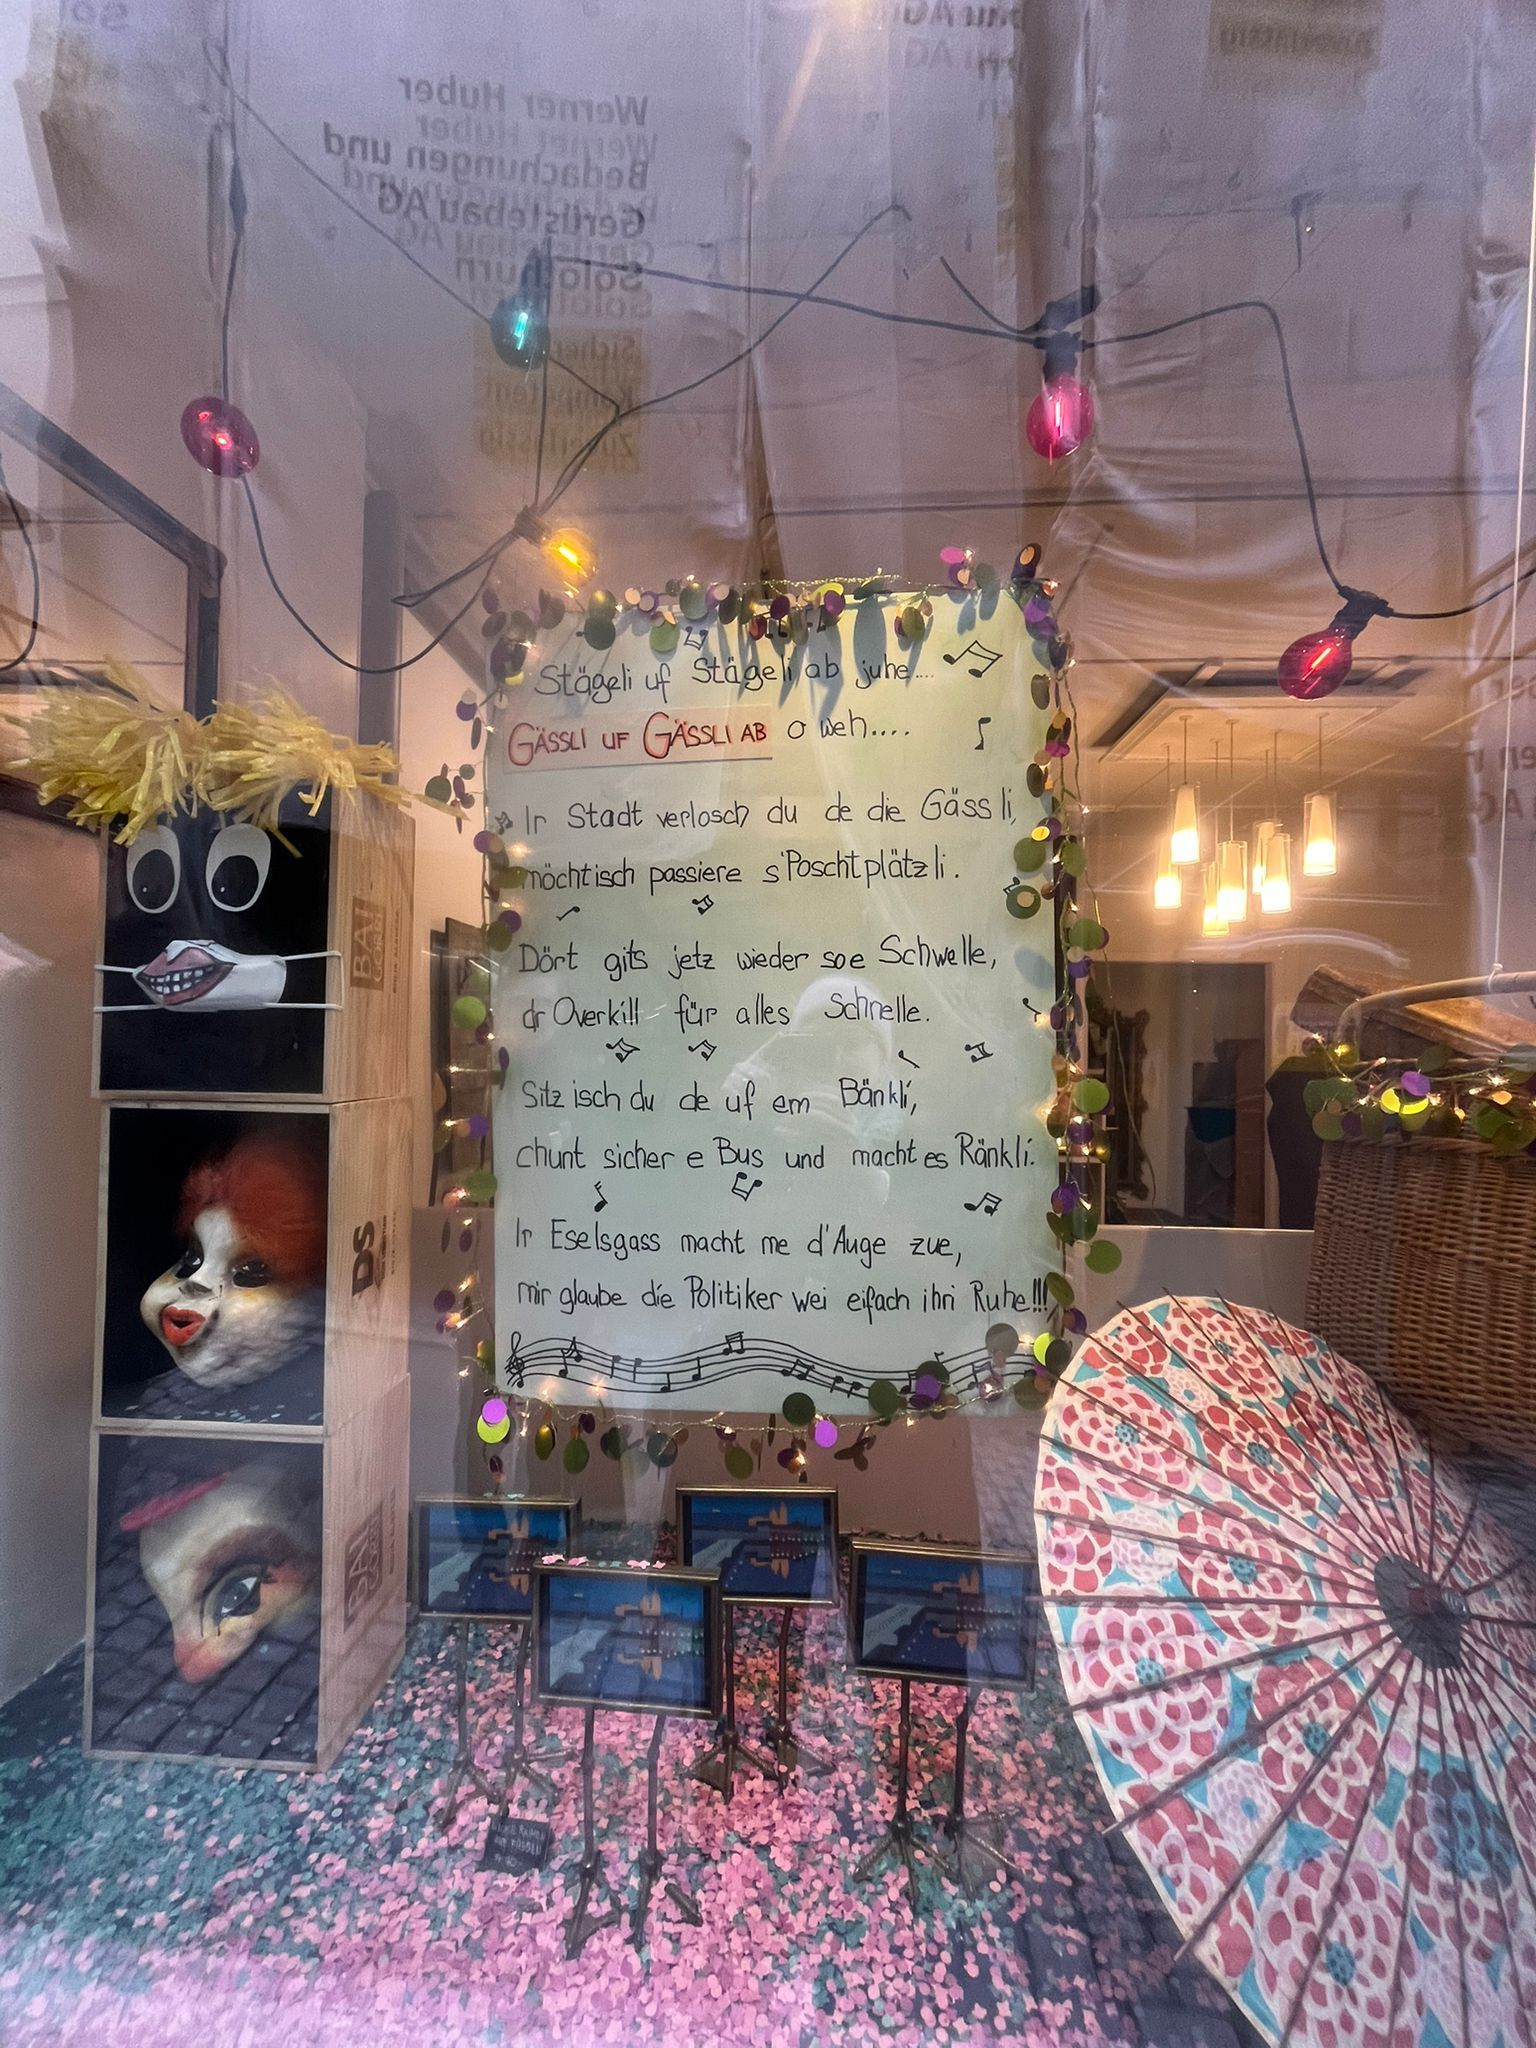 Werner Huber
Bedachungen und
Gerüstebau AG
Solothurn
Sicher
Kompetent
Zuverlässig
Stägeli uf Stägeli ab juhe....
GÄSSLI UF GÄSSLI AB o weh....
Ir Stadt verlosch du de die Gässli,
möchtisch passiere s'Poschtplätzli.
Dört gits jetz wieder soe Schwelle,
dr Overkill für alles Schnelle.
Sitz isch du de uf em Bänkli,
chunt sicher e Bus und macht es Ränkli.
Ir Eselsgass macht me d'Auge zue,
mir glaube die Politiker wei eifach ihri Ruhe!!!
DS